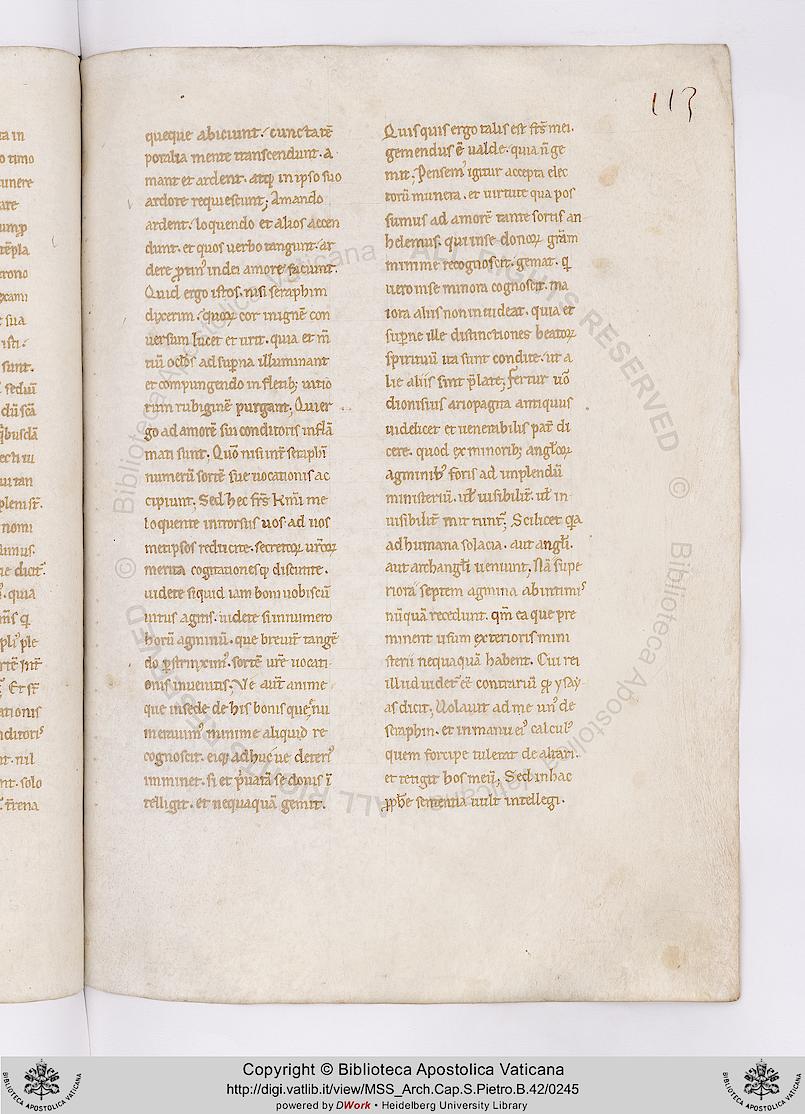 113
queque abiciunt. cuncta tẽ
poralia mente transcendunt. a
mant et ardent. atq; in ipso suo
ardore requiescunt; Amando
ardent. loquendo et alios accen
dunt. et quos uerbo tangunt. ar
dere ꝓtin' in dei amore faciunt.
Quid ergo istos. nisi seraphim
dixerim. quoꝝ cor in ignẽ con
uersum lucet et urit. quia et m̃
tiũ oc̃los ad sup̃na illuminant
et compungendo in fletib; uitio
rum rubiginẽ purgant; Qui er
go ad amorẽ sui conditoris inflã
mati sunt. Quõ nisi int̃ seraphĩ
numerũ sortẽ sue uocationis ac
cipiunt; Sed hec fr̃s km̃i me
loquente introrsus uos ad uos
metipsos reducite. secretoꝝ ur̃oꝝ
merita cogitationesq; discutite.
uidete siquid iam boni uobiscũ
intus agitis. uidete si in numero
horũ agminũ. que breuit̃ tangẽ
do ꝑstrinxim'. sortẽ ur̃e uocati
onis inuenitis; Ve aut̃ anime
que in se de his bonis que enu
merauim' minime aliquid re
cognoscit. eiq; adhuc ue deteri'
imminet. si et p̃uatã se donis ĩ
telligit. et nequaquã gemit.
Quisquis ergo talis est fr̃s mei.
gemendus ẽ ualde. quia ñ ge
mit; Pensem' igitur accepta elec
torũ munera. et uirtute qua pos
sumus ad amorẽ tante sortis an
helemus. qui in se donoꝝ gr̃am
minime recognoscit. gemat. q̃
uero in se minora cognoscit. ma
iora aliis non inuideat. quia et
sup̃ne ille distinctiones beatoꝝ
spirituũ ita sunt condite. ut a
lie aliis sint p̃late; Fertur uõ
dionisius ariopagita antiquus
uidelicet et uenerabilis pat̃ di
cere. quod ex minorib; angl̃oꝝ
agminib' foris ad implendũ
ministeriũ. ul̃ uisibilit̃. ul̃ in
uisibilit̃ mittunt̃; Scilicet q̃a
ad humana solacia. aut angl̃i.
aut archangl̃i ueniunt; Nã supe
riora septem agmina ab intimis
nũquã recedunt. qm̃ ea que pre
minent usum exterioris mini
sterii nequaquã habent. Cui rei
illud uidet̃ eẽ contrariũ ꝙ ysay
as dicit; Uolauit ad me un' de
seraphin. et in manu ei' calcul'
quem forcipe tulerat de altari.
et tetigit hos meũ; Sed in hac
ꝓph̃e sententia uult intellegi.
Copyright © Biblioteca Apostolica Vaticana
http://digi.vatlib.it/view/MSS_Arch.Cap.S.Pietro.B.42/0245
powered by DWork • Heidelberg University Library